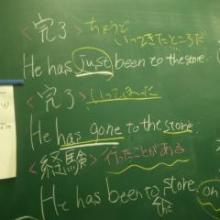 <完了> ちょうど いってきたところだ
He has just been to the store.
<完了> いってしまった
He has gone to the store.
<経験> 行ったことがある
He has been to store.
the
on